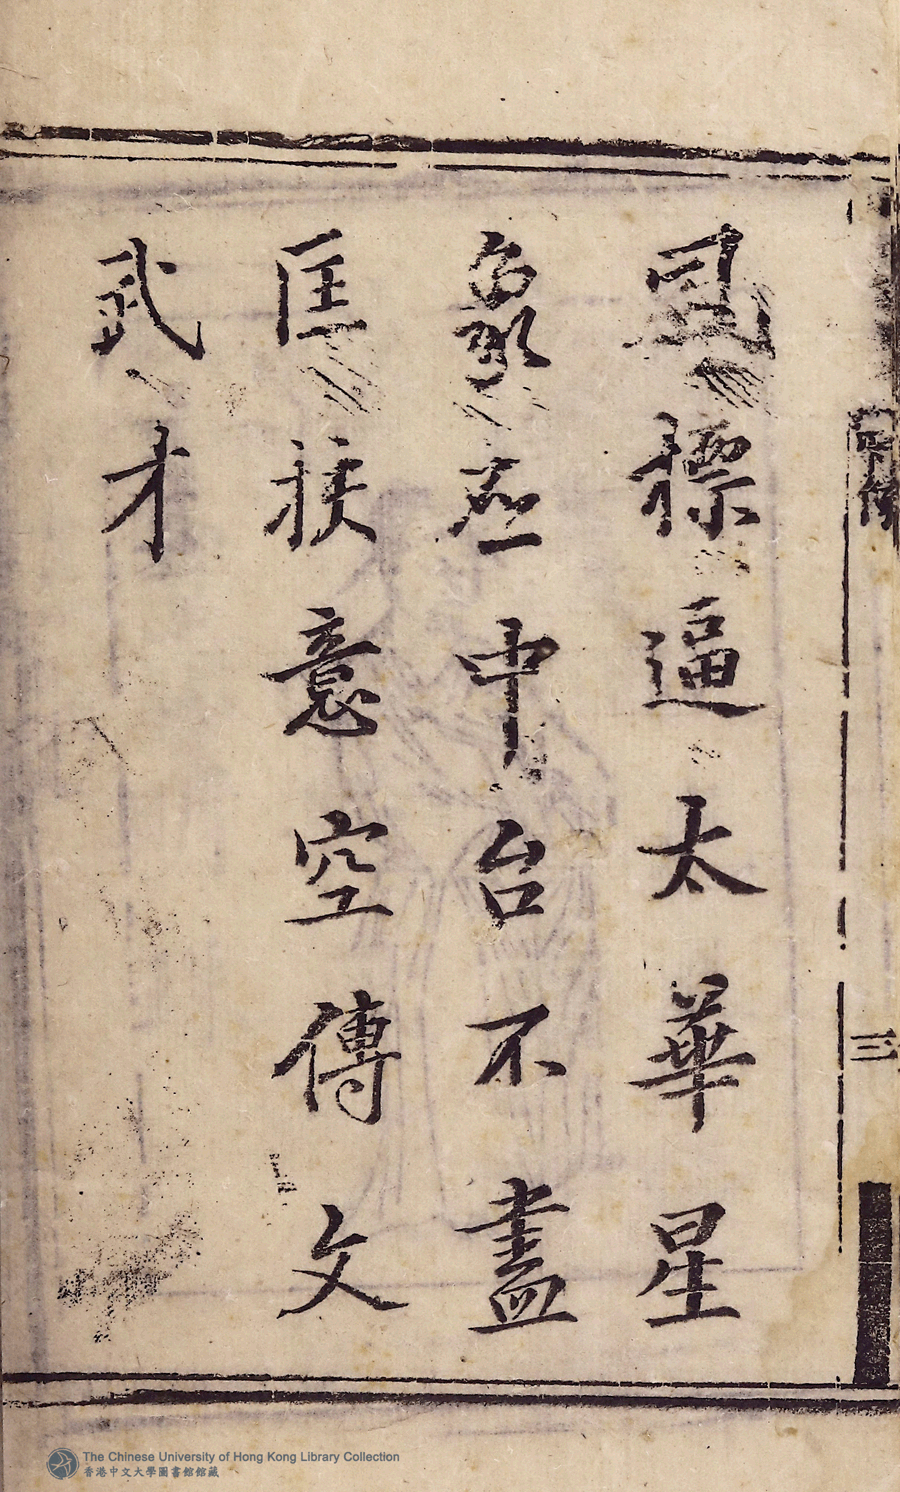 風標逼太華星
象应中台不盡
匡扶意空傳文
武才
三
The Chinese University of Hong Kong Library Collection
香港中文大學圖書館館藏